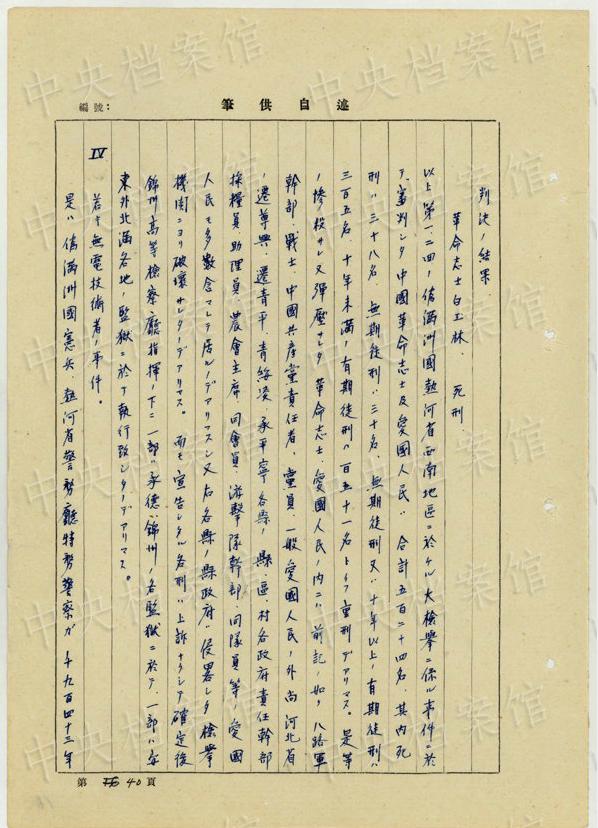 編號：
筆供自述
判決ノ結果．
革命志士白玉林． 死刑．
以上第一、二、四ノ偽滿洲國熱河省西南地區ニ於ケル大檢擧ニ係ル事件ニ於
テ、審判シタ中國革命志士及愛國人民ハ 合計五百二十四名、其内死
刑ハ三十八名 無期徒刑ハ三十名、無期徒刑又ハ十年以上ノ有期徒刑ハ
三百五名、十年未満ノ有期徒刑ハ百五十一名ト 重刑デアリマス。是等
ノ惨殺サレ又彈壓サレタ革命志士、愛國人民ノ内ニハ前記ノ如ク八路軍
幹部、戰士、中國共産黨責任者、黨員、一般愛國人民ノ外尚河北省
ノ遷尊興、遷青平、青綏凌、承平寧各縣ノ縣區村各政府責任幹部
採糧員、助理員、農會主席、同會員、游擊隊幹部、同隊員等ノ愛國
人民モ多數含マレテ居ルノデアリマスシ又右各縣ノ縣政府ハ侵畧シタ檢擧
機関ニヨリ破壊サレタノデアリマス。而モ宣告シタル各刑ハ上訴ナクシテ確定後
錦州高等檢察廳指揮ノ下ニ一部ハ承德、錦州ノ各監獄ニ於テ、一部ハ安
東外北滿各地ノ監獄ニ於テ執行致シタノデアリマス。
IV 若干無電技術者ノ事件。
是ハ偽滿洲國憲兵 熱河省警務廳特務警察ガ 千九百四十三年
第 40 頁
中央档案馆